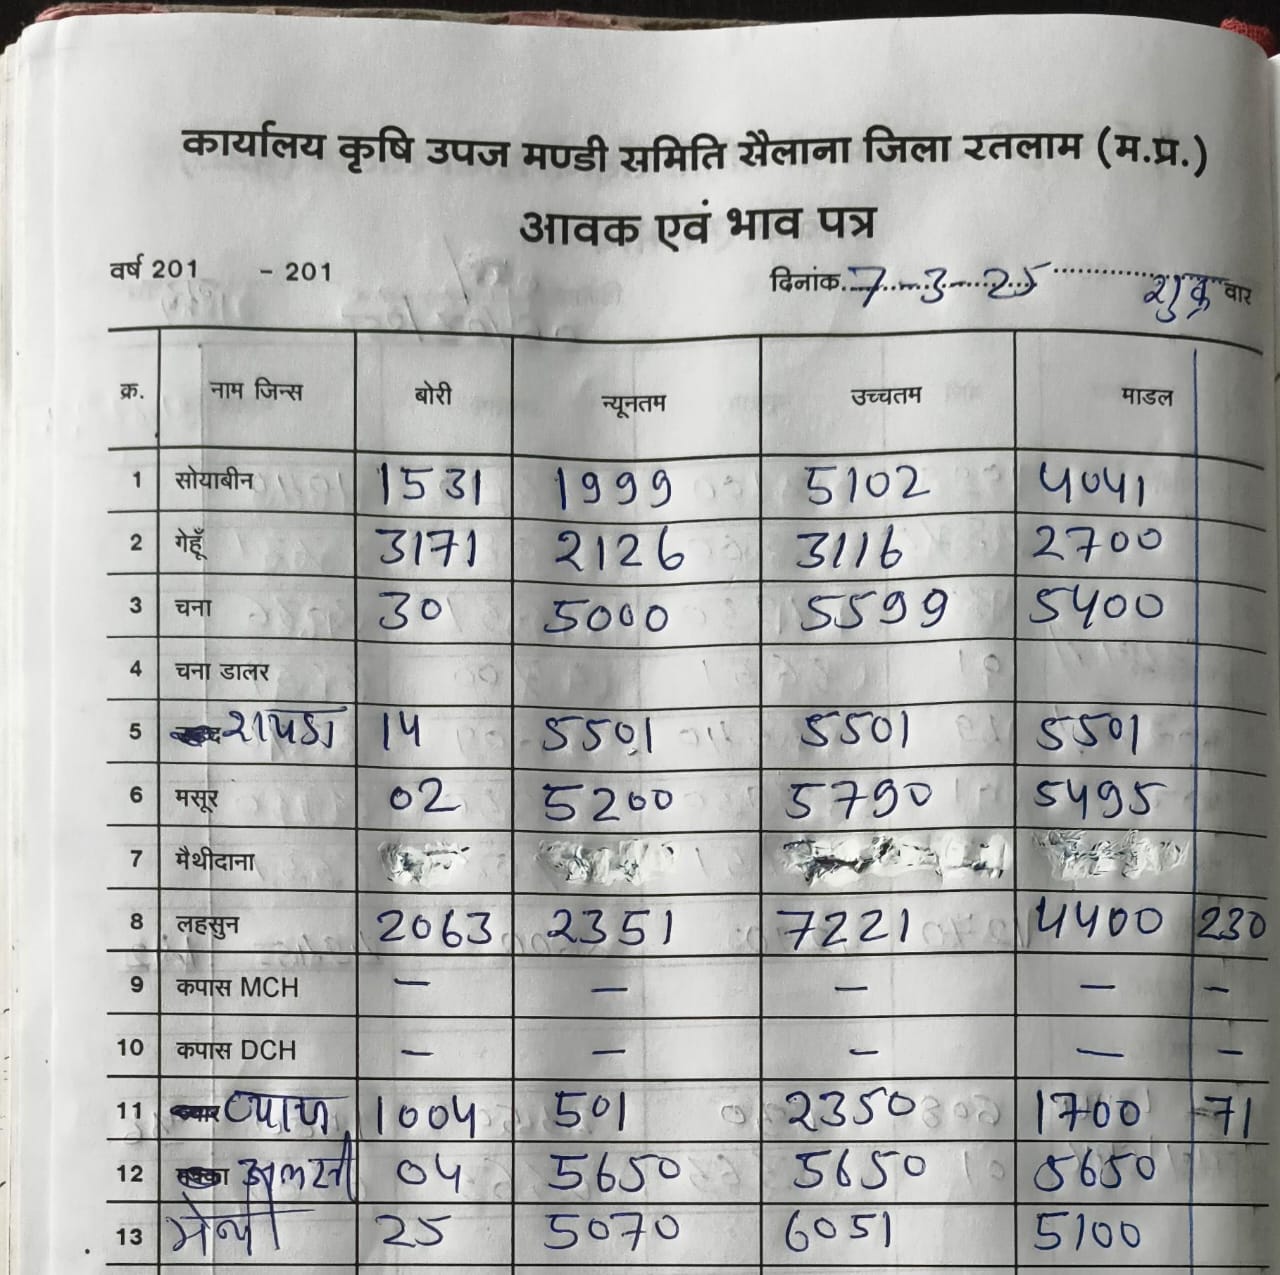 कार्यालय कृषि उपज मण्डी समिति सैलाना जिला रतलाम (म.प्र.)
आवक एवं भाव पत्र
वर्ष 201 - 201 दिनांक 7-3-25 शुक्र वार
क्र. नाम जिन्स बोरी न्यूनतम उच्चतम माडल
1 सोयाबीन 1531 1999 5102 4041
2 गेहूँ 3171 2126 3116 2700
3 चना 30 5000 5599 5400
4 चना डालर
5 रायडा 14 5501 5501 5501
6 मसूर 02 5200 5790 5495
7 मैथीदाना
8 लहसुन 2063 2351 7221 4400 230
9 कपास MCH - - - - -
10 कपास DCH - - - - -
11 प्याज 1004 501 2350 1700 71
12 अलसी 04 5650 5650 5650
13 मेथी 25 5070 6051 5100